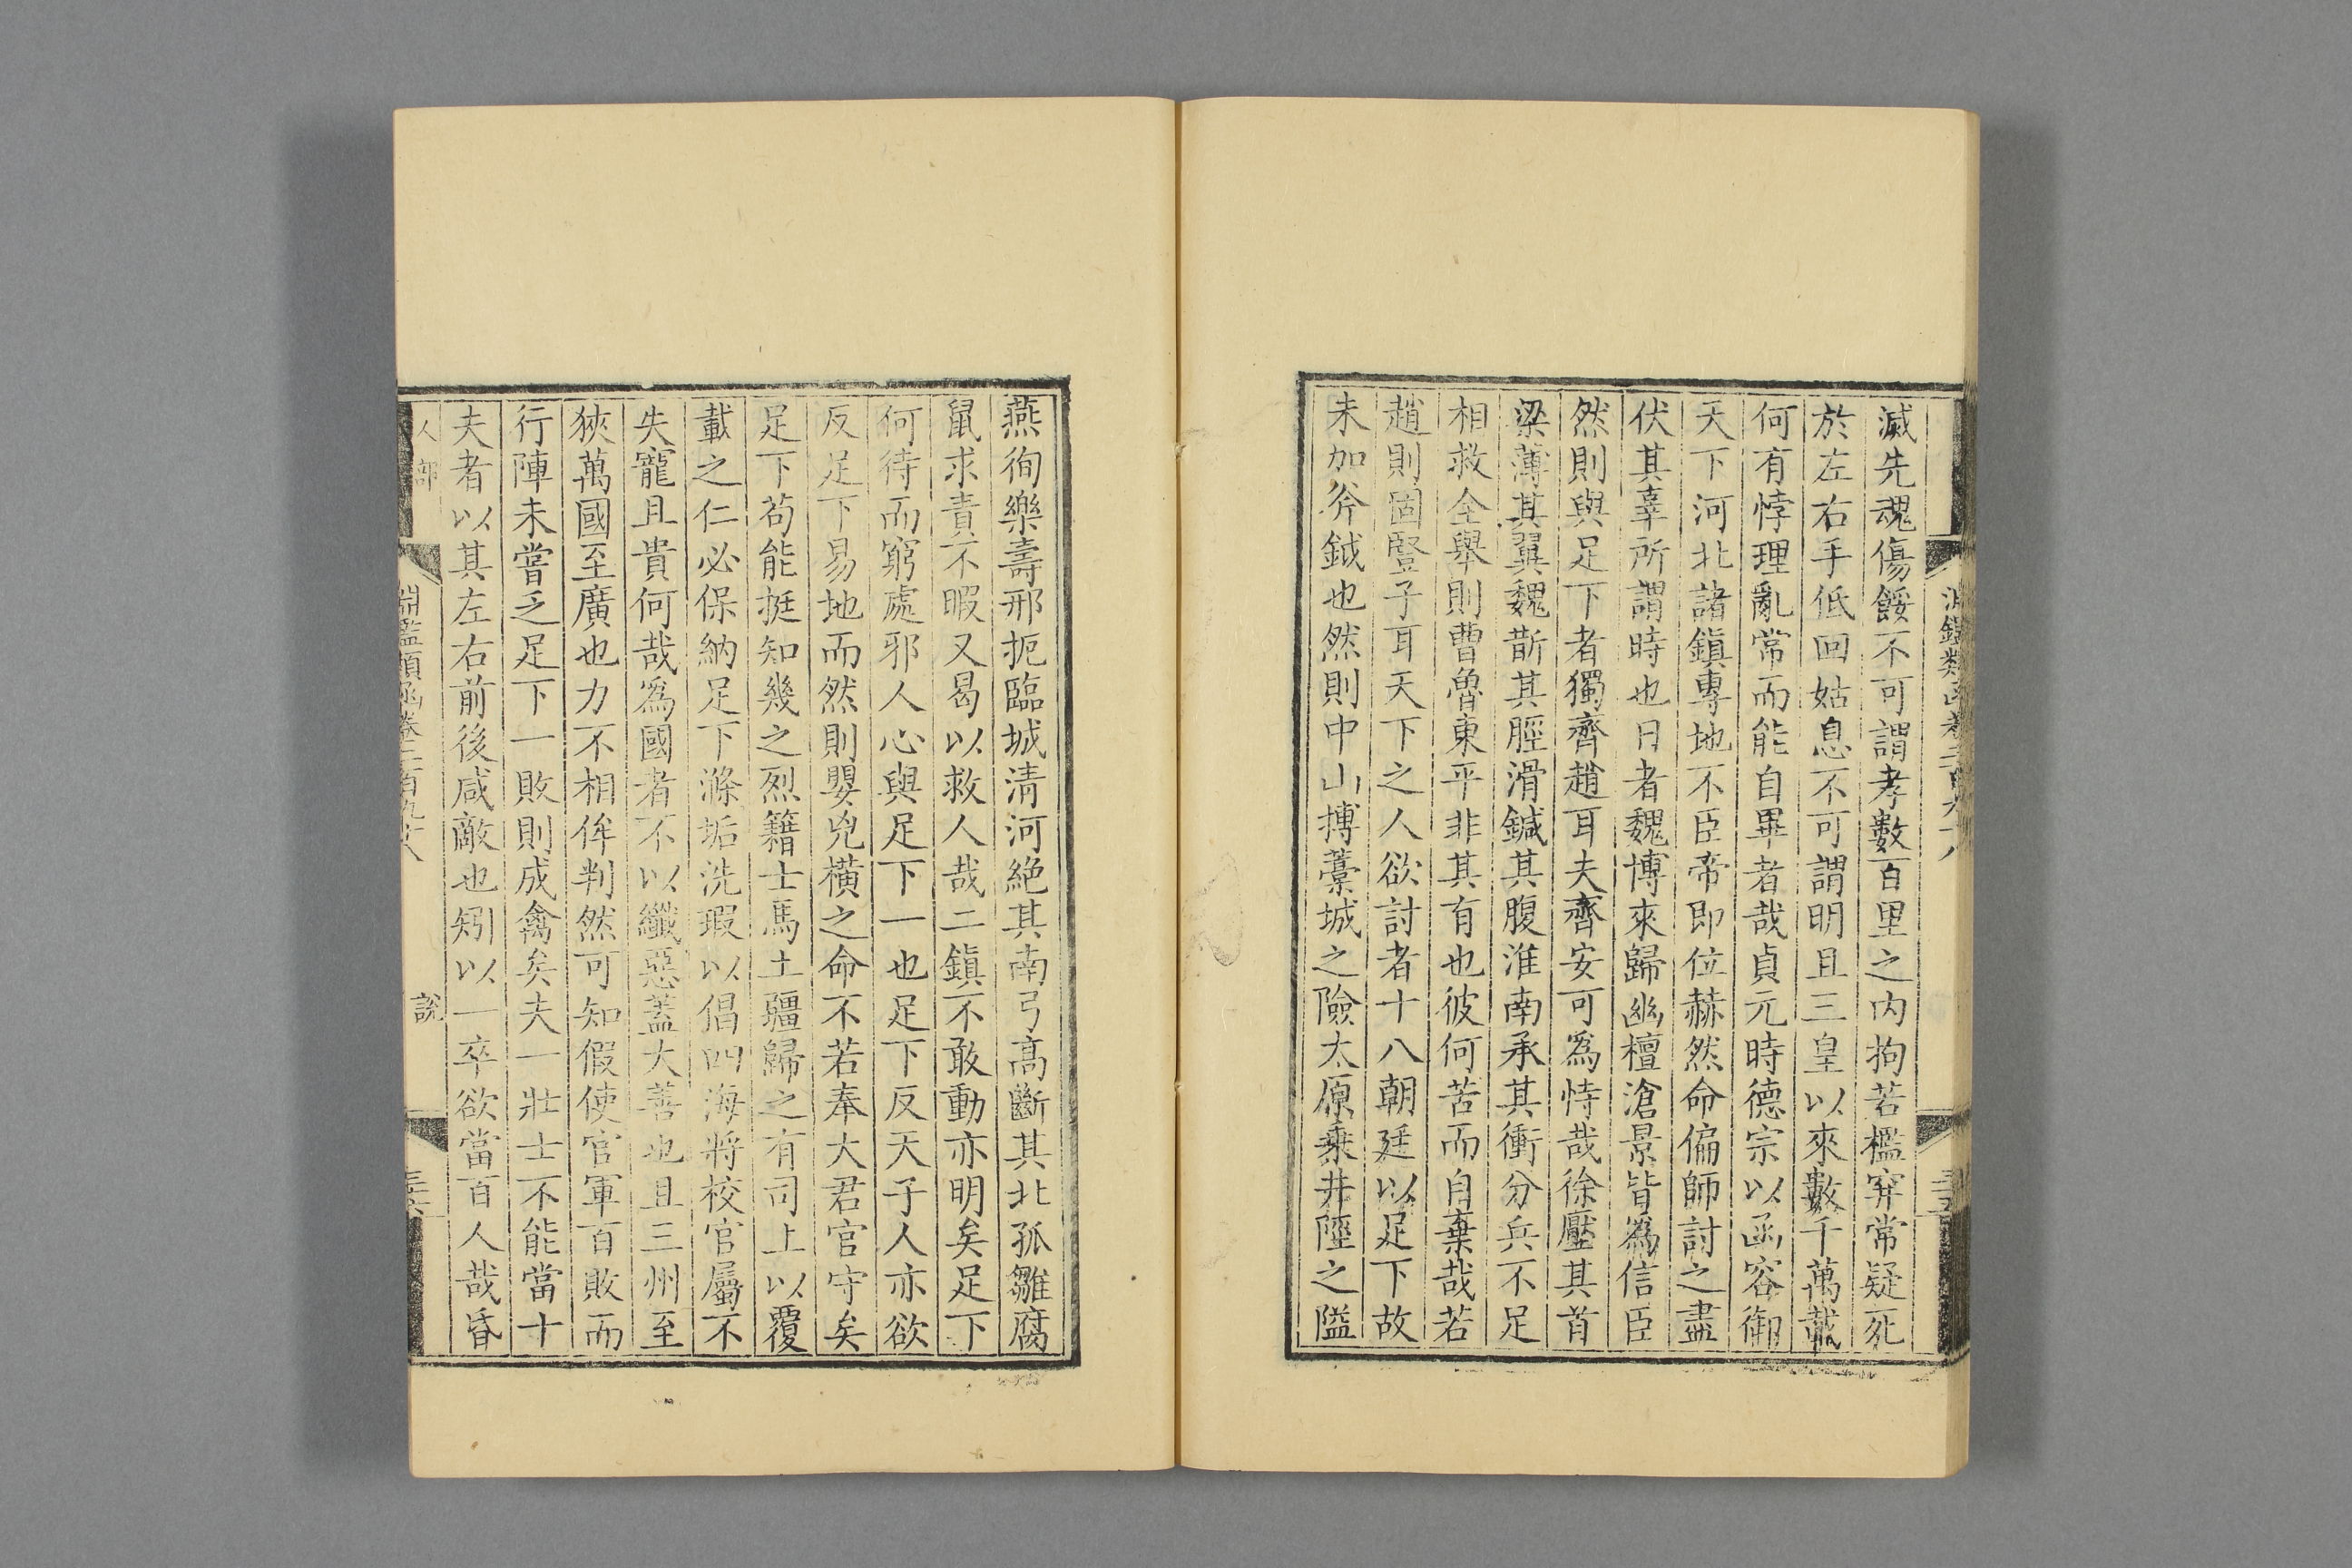 淵鑑類函卷二百九十八
三十五
滅先魂傷餒不可謂孝數百里之内拘若檻穽常疑死
於左右手低回姑息不可謂明且三皇以來數千萬載
何有悖理亂常而能自畢者哉貞元時德宗以函容御
天下河北諸鎮專地不臣帝即位赫然命偏師討之盡
伏其辜所謂時也日者魏博來歸幽檀滄景皆爲信臣
然則與足下者獨齊趙耳夫齊安可爲恃哉徐壓其首
梁薄其翼魏斮其脛滑鍼其腹淮南承其衝分兵不足
相救全舉則曹魯東平非其有也彼何苦而自棄哉若
趙則固豎子耳天下之人欲討者十八朝廷以足下故
未加斧鉞也然則中山搏藁城之險太原乘井陘之隘
燕徇樂壽邢扼臨城淸河絶其南弓高斷其北孤雛腐
鼠求責不暇又曷以救人哉二鎮不敢動亦明矣足下
何待而窮處邪人心與足下一也足下反天子人亦欲
反足下易地而然則嬰兇橫之命不若奉大君官守矣
足下苟能挺知幾之烈籍士馬土疆歸之有司上以覆
載之仁必保納足下滌垢洗瑕以倡四海將校官屬不
失寵且貴何哉爲國者不以纖惡蓋大善也且三州至
狹萬國至廣也力不相侔判然可知假使官軍百敗而
行陣未嘗乏足下一敗則成禽矣夫一壯士不能當十
夫者以其左右前後咸敵也矧以一卒欲當百人哉昏
人部
淵鑑類函卷二百九十八
說
三十六